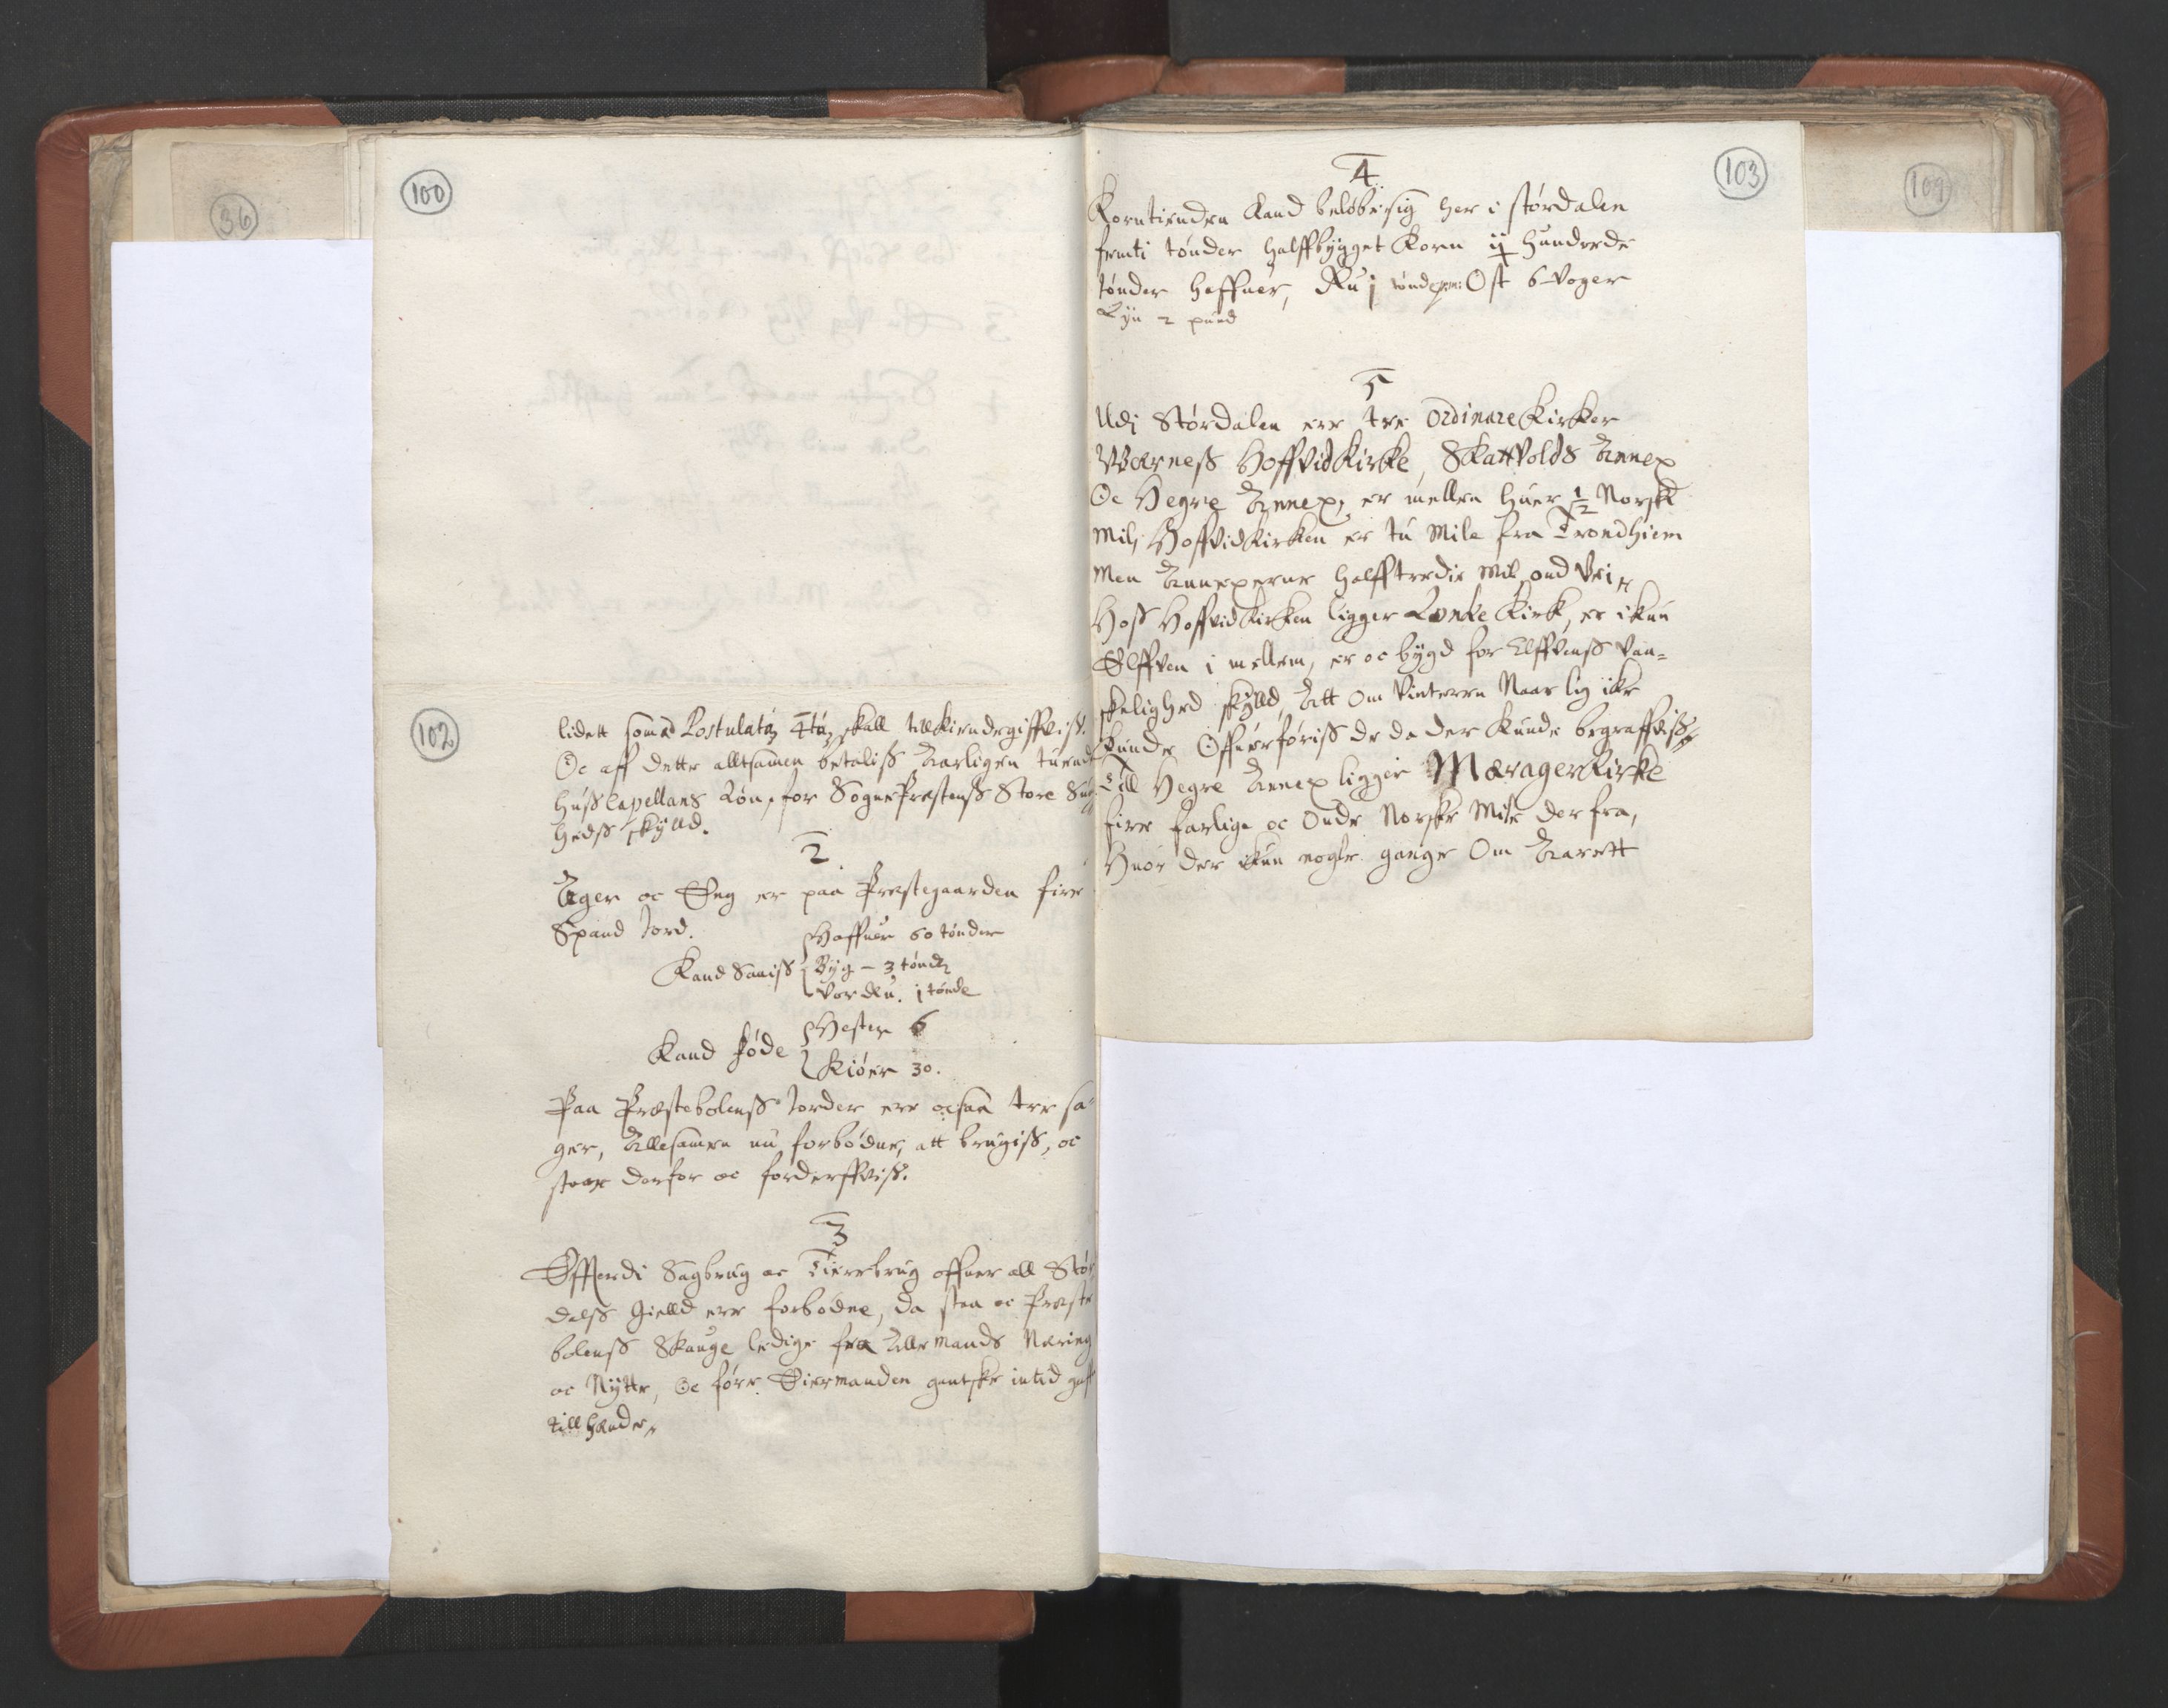 36
100
102
lidett som ad Postulatū 4tū skall tillkiende giffvis.
Oc aff dette alltsamen betaliss Aarligen tuende
huss Capellans Løn, for Sogne Præstenss Store
hedss skylld.
2
Ager oc Eng er paa Præstegaarden fire
Spand Jord.
Kand Saaiss
Haffuer 60 tønder
Byg - 3 tønde
Vor Ru. j tønde
Kand føde
Hester 6
Kiøer 30.
Paa Præstebolenss Jorder ere ocsaa tre sa-
ger, Allesamen nu forbødne, att brugiss, oc
staar derfor oc forderffvis.
3
Effterdi Sagbrug oc Tierebrug offuer all Stør
dalss Gielld ere forbødne, da staa oc Præste
bolenss Skauge ledige fra Alle Mands Næring
oc Nytte, Oc føre Eiermanden gantske intid gott
till hænder,
103
109
4
Korntienden Kand beløbe sig her i Størdalen
femti tønder halffbygget Korn ij hundrede
tønder haffuer, Ru j tønde Ost 6 Voger
Lijn 2 pund
5
Udj Størdalen ere tre Ordinare Kirker
Værness Hoffvid Kirke, Skattvolds Annex
Oc Hegre Annex, er mellem huer 1/2 Norsk
Mil, Hoffvid Kirken er tu Mile fra Trondhiem
Men Annexerne halfftredie Mil ond Vei,
Hoss Hoffvid Kirken ligger Lonke Kirk, er ikun
Elffven i mellem, er oc bygd for Elffvenss Van-
skelighed skylld, Att Om Vinteren Naar lig icke
kunde Offuerføriss de da der kunde begraffviss,
Till Hegre Annex ligger Mæragers Kirke
fire farlige oc Onde Norske Mile der fra,
Huor der ikun nogle gange Om Aarett